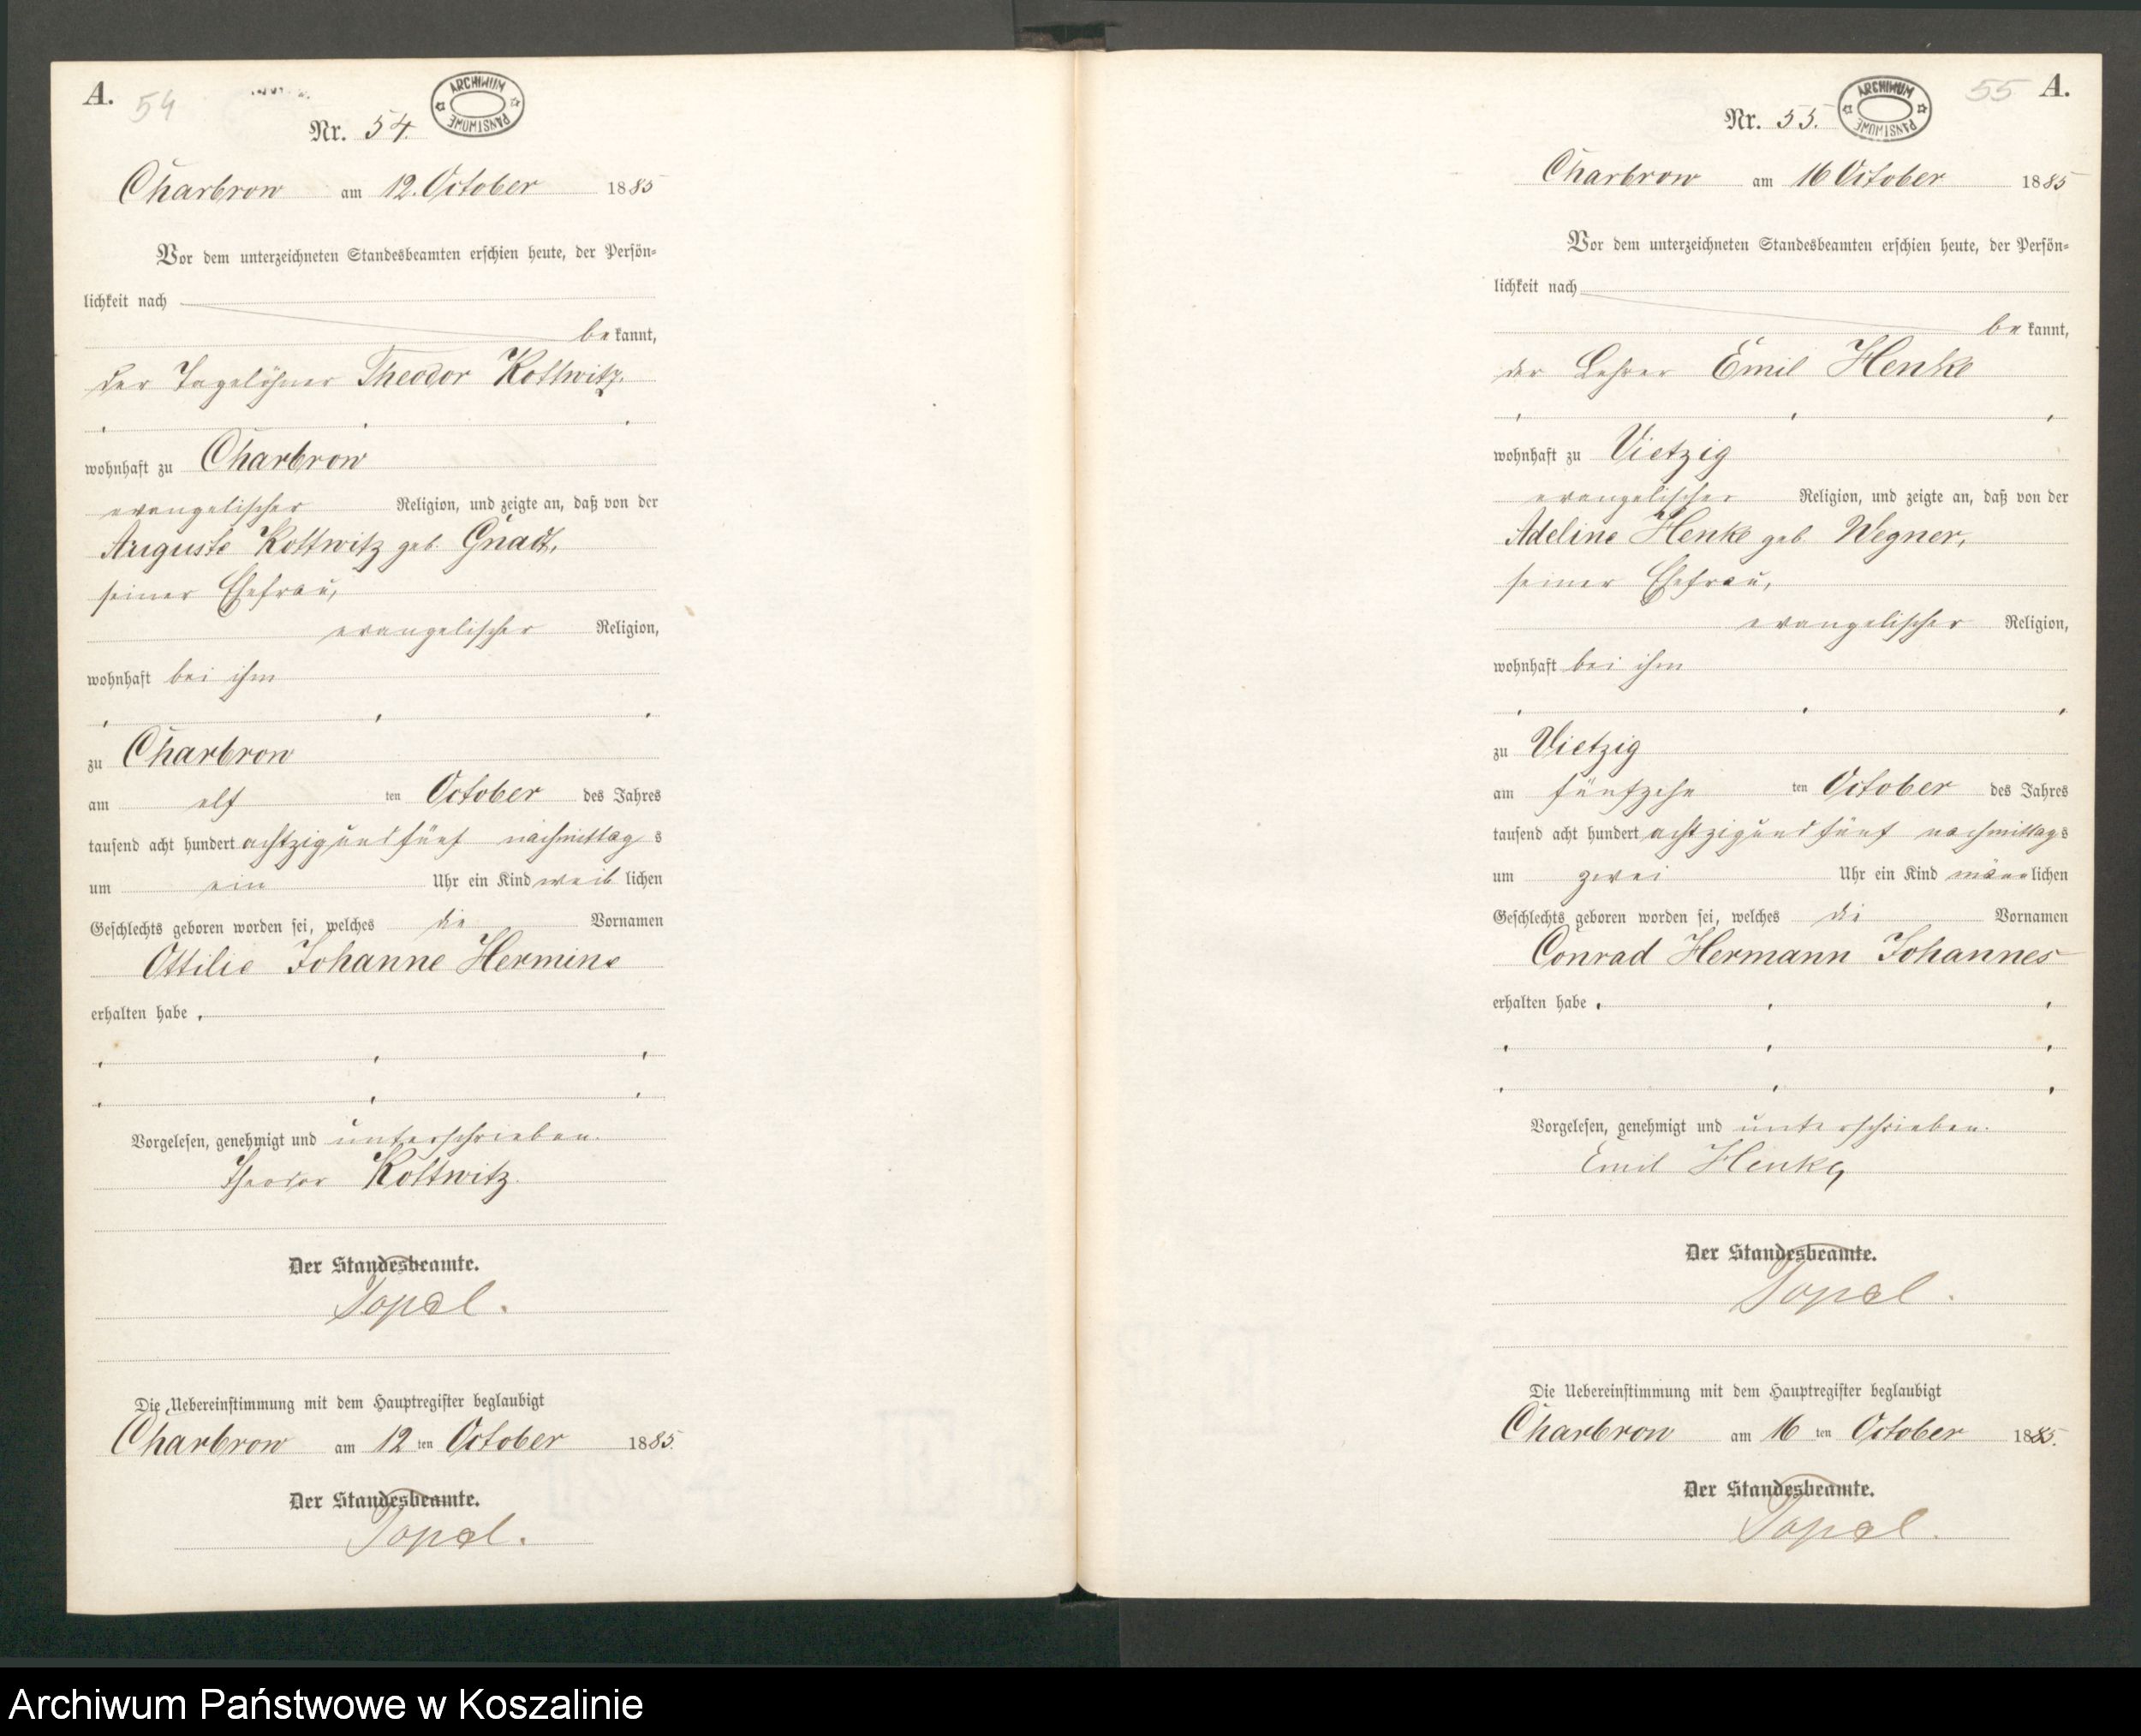 A.
54
Nr. 54.
ARCHIWUM PAŃSTWOWE
Charbrow am 12. October 1885
Vor dem unterzeichneten Standesbeamten erschien heute, der Persön-
lichkeit nach
bekannt,
der Tagelöhner Theodor Kottwitz.
wohnhaft zu Charbrow
evangelischer Religion, und zeigte an, daß von der
Auguste Kottwitz geb. Gnadt,
seiner Ehefrau,
evangelischer Religion,
wohnhaft bei ihm
zu Charbrow
am elf ten October des Jahres
tausend acht hundert achtzig und fünf nachmittags
um ein Uhr ein Kind weiblichen
Geschlechts geboren worden sei, welches die Vornamen
Ottilie Johanne Hermine
erhalten habe.
Vorgelesen, genehmigt und unterschrieben.
Theodor Kottwitz.
Der Standesbeamte.
Die Uebereinstimmung mit dem Hauptregister beglaubigt
Charbrow am 12 ten October 1885.
Der Standesbeamte.
55 A.
Nr. 55.
ARCHIWUM PAŃSTWOWE
Charbrow am 16 October 1885
Vor dem unterzeichneten Standesbeamten erschien heute, der Persön-
lichkeit nach
bekannt,
der Lehrer Emil Henke
wohnhaft zu Vietzig
evangelischer Religion, und zeigte an, daß von der
Adeline Henke geb. Wegner,
seiner Ehefrau,
evangelischer Religion,
wohnhaft bei ihm
zu Vietzig
am fünfzehn ten October des Jahres
tausend acht hundert achtzig und fünf nachmittags
um zwei Uhr ein Kind männlichen
Geschlechts geboren worden sei, welches die Vornamen
Conrad Hermann Johannes
erhalten habe.
Vorgelesen, genehmigt und unterschrieben.
Emil Henke,
Der Standesbeamte.
Die Uebereinstimmung mit dem Hauptregister beglaubigt
Charbrow am 16 ten October 1885.
Der Standesbeamte.
Archiwum Państwowe w Koszalinie